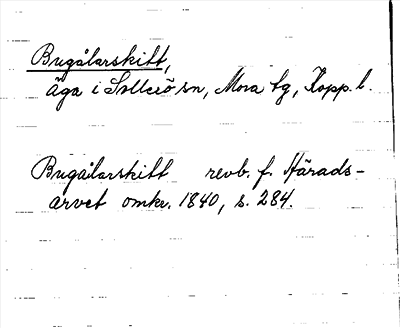 Bugålarskift,
äga i Sollerö sn, Mora tg, Kopp. l.
Bugålarskift revb. f. Härads-
arvet omkr. 1840, s. 284.